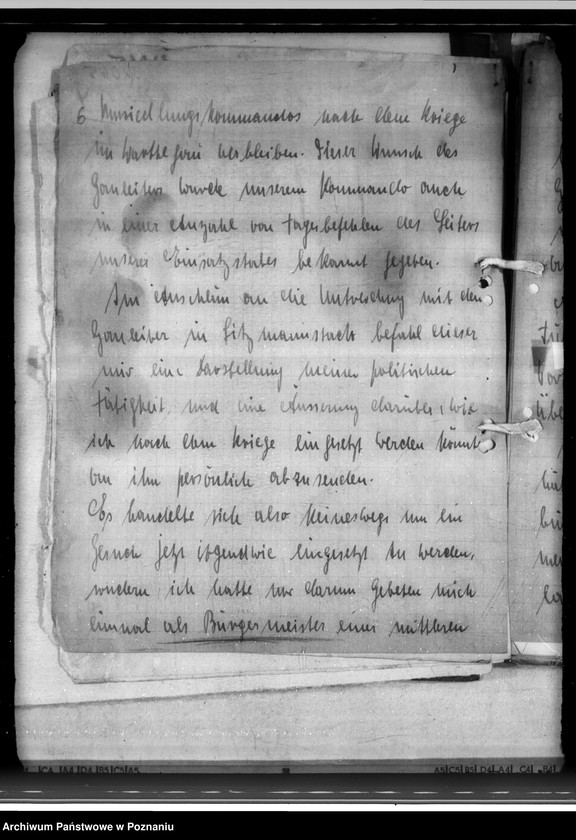 6 Ansiedlungskommandos nach dem Kriege
im Warthegau verbleiben. Dieser Wunsch des
Gauleiters wurde unserem Kommando auch
in einer Anzahl von Tagesbefehlen des Leiters
unseres Einsatzstabes bekannt gegeben.
Im Anschluss an die Unterredung mit dem
Gauleiter in Litzmannstadt befahl dieser
mir eine Darstellung meiner politischen
Tätigkeit, und eine Äusserung darüber, wie
ich nach dem Kriege eingesetzt werden könnte
an ihn persönlich abzusenden.
Es handelte sich also keineswegs um ein
Gesuch jetzt irgendwie eingesetzt zu werden,
sondern ich hatte nur darum gebeten mich
einmal als Bürgermeister einer mittleren
Archiwum Państwowe w Poznaniu